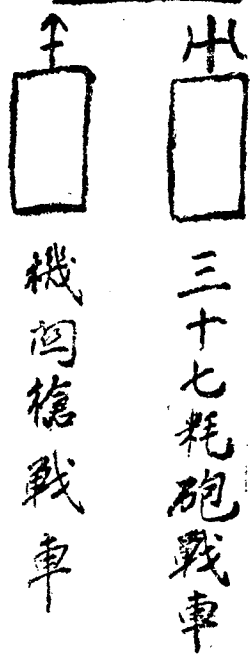 三十七粍砲戰車
機関槍戰車